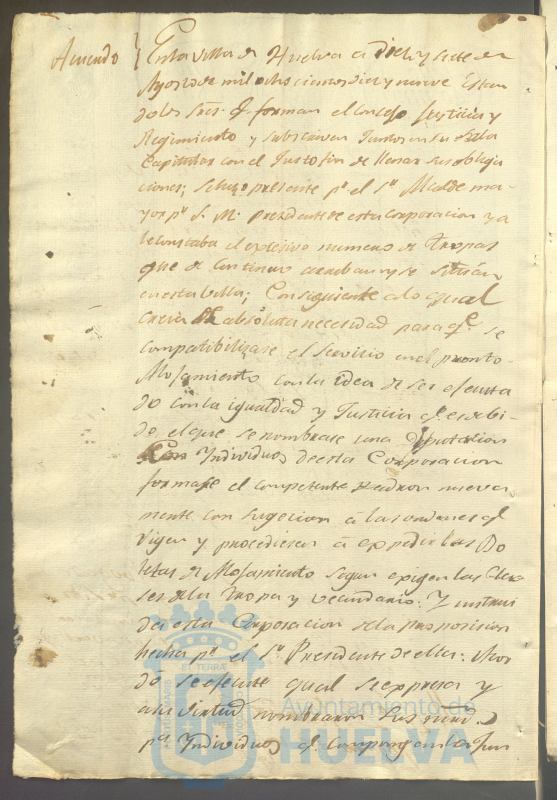 Acuerdo } En la villa de Huelva a diez y siete de
Agosto de mil ochocientos diez y nueve Estan
do los Sres. q. forman el Concejo Justicia y
Regimiento y subscriven Juntos en su Sala
Capitular con el Justo fin de llenar sus obliga
ciones; Se hizo presente pr. el Sr. Alcalde ma-
yor pr. S. M. Presidente de esta Corporacion ya
le constaba el excesivo numero de tropas
que de continuo arriban y se sitúan
en esta villa; Consiguiente a lo qual
creia de absoluta necesidad para q. se
compatibilizase el servicio en el pronto
Alojamiento con la idea de ser efectua
do con la igualdad y Justicia q. es debi-
do el que se nombrase una Diputacion
Individuos de esta Corporacion
formase el competente Padron nueva
mente con sugecion à las ordenes q.
vigen y procediesen à expedir las Bo
letas de Alojamiento segun exigen las Cla
ses de la tropa y vecindario. Y instrui
da esta Corporacion de la proposicion
hecha pr. el Sr. Presidente de ella: Acor
dó se efectue qual se expresa y
a su virtud nombraron Sus mrds.
pa. Individuos q. compongan la Jun
ET TERRÆ
Ayuntamiento de
HUELVA